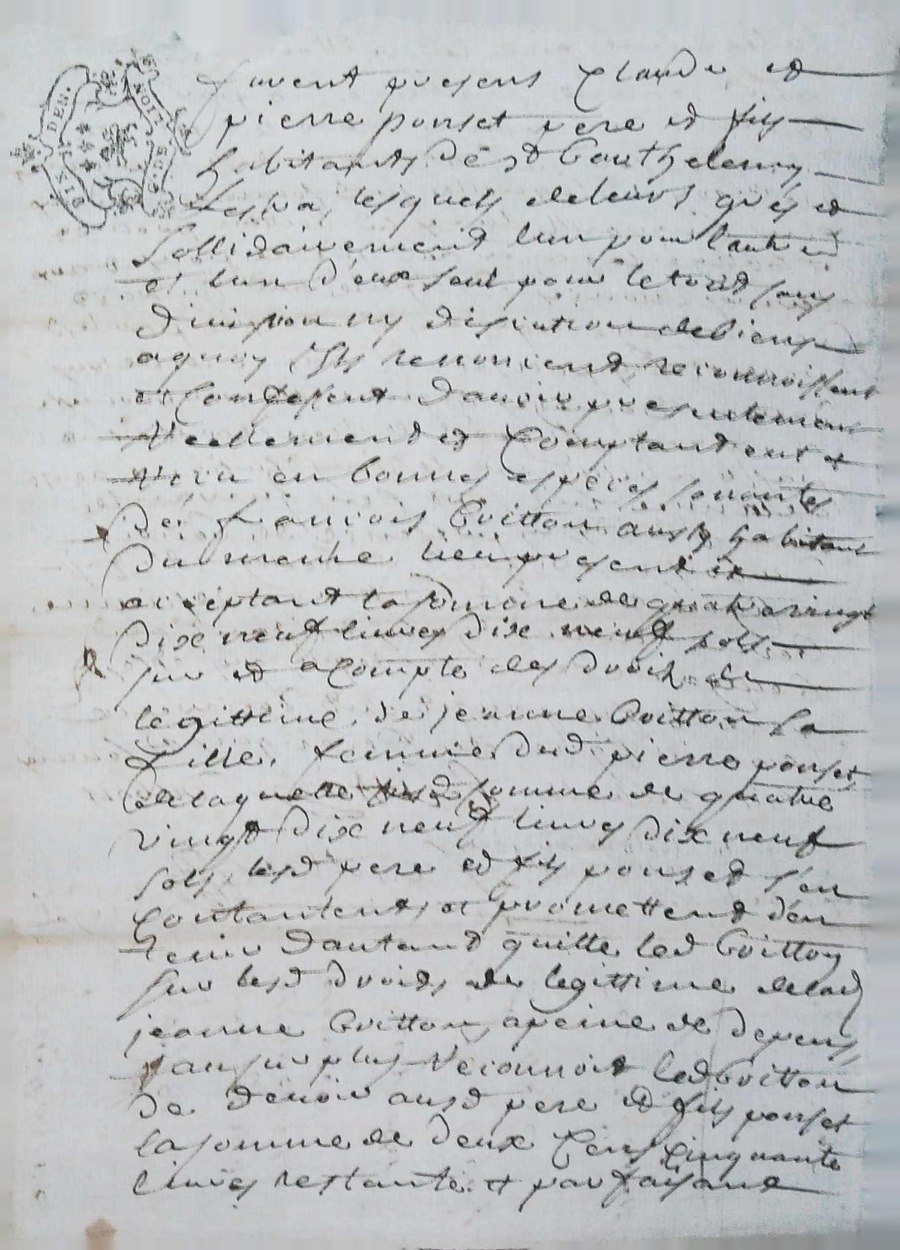 DIX DEN. NOIZ DE
furent presens Claude et
pierre ponset pere et fils
habitants de st Barthelemy
Lestra, lesquels de leurs grés et
sollidairement lun pour lautre
et lun deux seul pour le tout sans
division ny discution de biens
aquoy ils renoncent, reconnoissent
et Confessent davoir presentement
Reellement et Comptant eut et
Recu en bonnes espèces sonantes
de françois Boitton aussy habitant
du meme lieu present et
acceptant la somme de quatre vingt
dix neuf livres dix neuf sols
sur et a Compte des droits de
legittime de jeanne Boitton sa
fille, femme dud pierre ponset
de laquelle somme de quatre
vingt dix neuf livres dix neuf
sols lesd pere et fils ponset s'en
Contantents et promettent d'en
tenir d'autand quitte led Boitton
sur lesd droits de legittime delad
jeanne Boitton, apeine de depens,
au surplus Reconnoit led Boitton
de devoir ausd pere et fils ponset
la somme de deux Cens Cinquante
livres restante et parfaisant